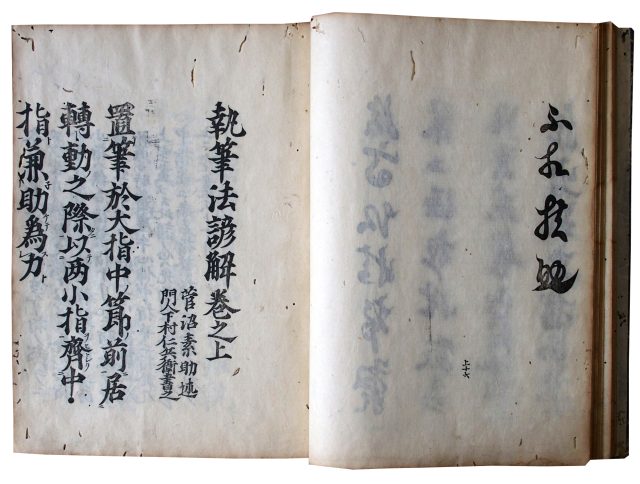 不相扶助
上十六
執筆法諺解卷之上
菅沼素助述
門人下村仁兵衛書之
置筆於大指中節前居
轉動之際以两小指齊中
指兼助爲力